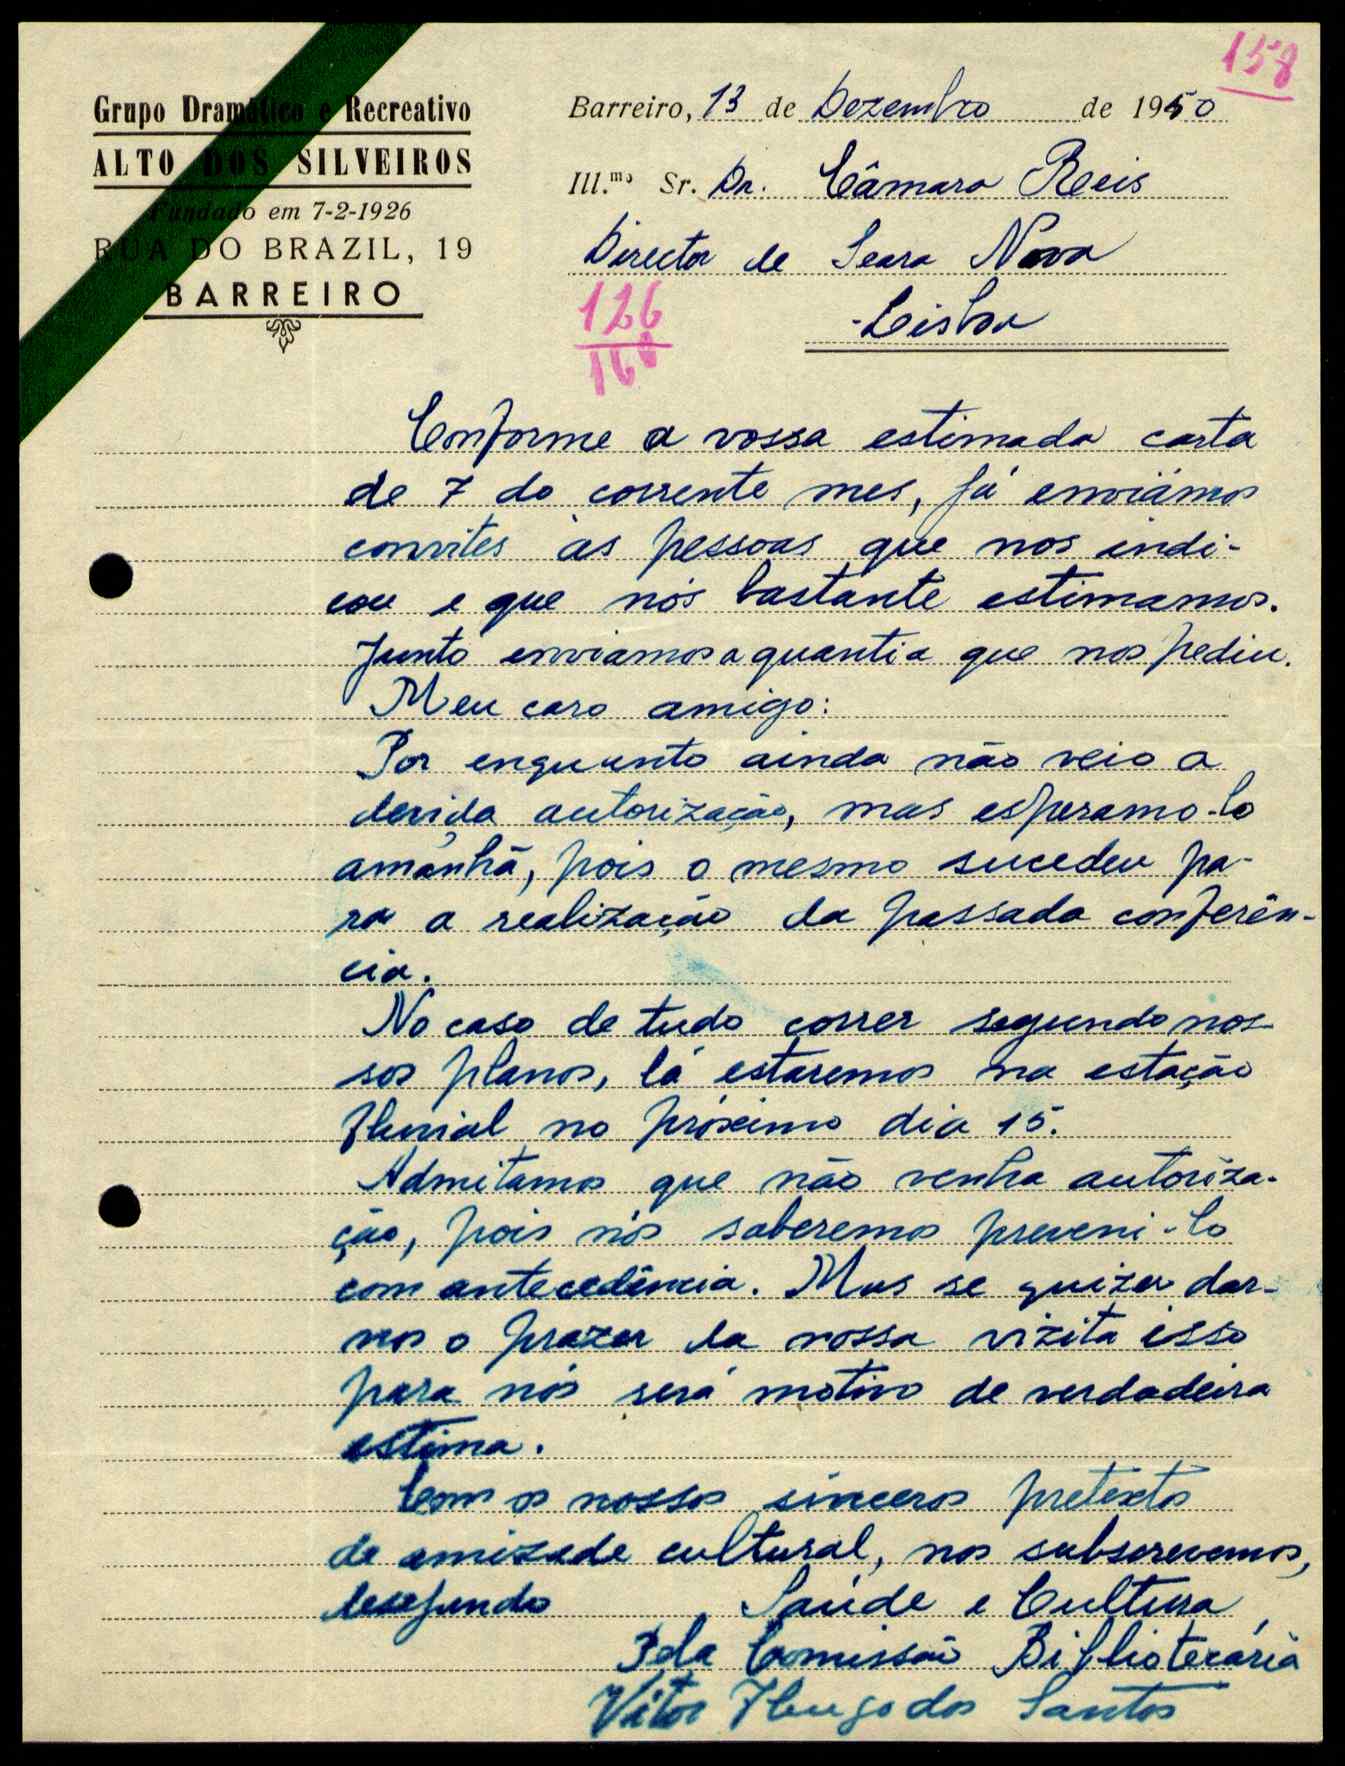 158
Grupo Dramático e Recreativo
ALTO DOS SILVEIROS
Fundado em 7-2-1926
RUA DO BRAZIL, 19
BARREIRO
Barreiro, 13 de Dezembro de 1950
Ill.mo Sr. Dr. Câmara Reis
Director de Seara Nova
126
160
Lisboa
Conforme a vossa estimada carta
de 7 do corrente mes, já enviámos
convites às pessoas que nos indi-
cou e que nós bastante estimamos.
Junto enviamos a quantia que nos pediu.
Meu caro amigo:
Por enquanto ainda não veio a
devida autorização, mas esperamo-la
amanhã, pois o mesmo sucedeu pa-
ra a realização da passada conferên-
cia.
No caso de tudo correr segundo nos-
sos planos, lá estaremos na estação
fluvial no próximo dia 15.
Admitamos que não venha autoriza-
ção, pois nós saberemos preveni-lo
com antecedência. Mas se quizer dar-
nos o prazer da vossa vizita isso
para nós será motivo de verdadeira
estima.
Com os nossos sinceros pretextos
de amizade cultural, nos subscrevemos,
desejando Saúde e Cultura
Pela Comissão Bibliotecária
Vitor Hugo dos Santos